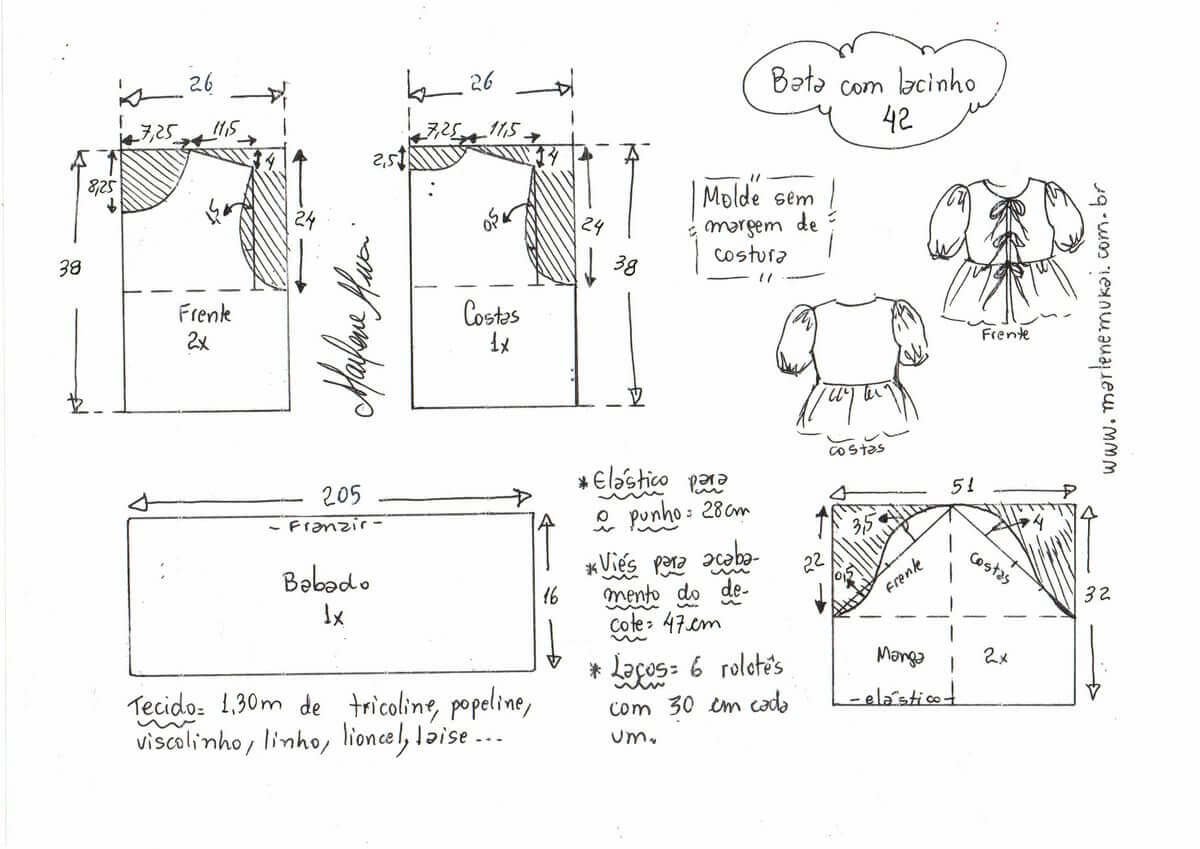 Bata com lacinho
42
26
7,25
11,5
8,25
4
24
38
Frente
2x
26
7,25
11,5
2,5
4
0,5
24
38
Costas
1x
Molde sem
margem de
costura
Frente
Costas
www.marlenemukai.com.br
205
- Franzir -
Babado
1x
16
Tecido= 1,30m de tricoline, popeline,
viscolinho, linho, lioncel, laise ...
* Elástico para
o punho= 28cm
* Viés para acaba-
mento do de-
cote= 47cm
* Laços= 6 rolotês
com 30 em cada
um.
51
3,5
4
22
0,5
Frente
Costas
32
Manga 2x
- elástico -